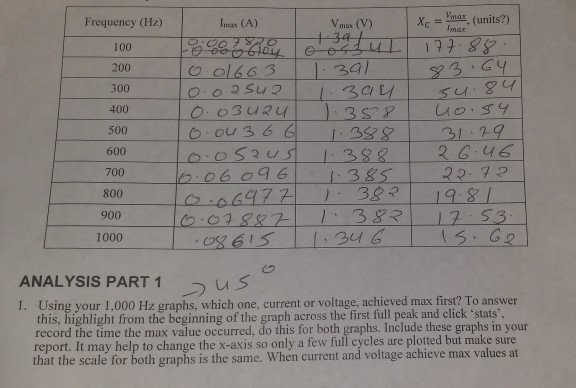 Frequency (Hz) Imax (A) Vmax (V) Xc = Vmax/Imax, (units?)
100 0.007820 1.391 177.88.
200 0.01663 1.391 83.64
300 0.02542 1.394 54.84
400 0.03424 1.388 40.54
500 0.04366 1.388 31.79
600 0.05245 1.388 26.46
700 0.06096 1.385 22.72
800 0.06977 1.382 19.81
900 0.07887 1.382 17.53.
1000 .08615 1.346 15.62
ANALYSIS PART 1
1. Using your 1,000 Hz graphs, which one, current or voltage, achieved max first? To answer
this, highlight from the beginning of the graph across the first full peak and click 'stats',
record the time the max value occurred, do this for both graphs. Include these graphs in your
report. It may help to change the x-axis so only a few full cycles are plotted but make sure
that the scale for both graphs is the same. When current and voltage achieve max values at